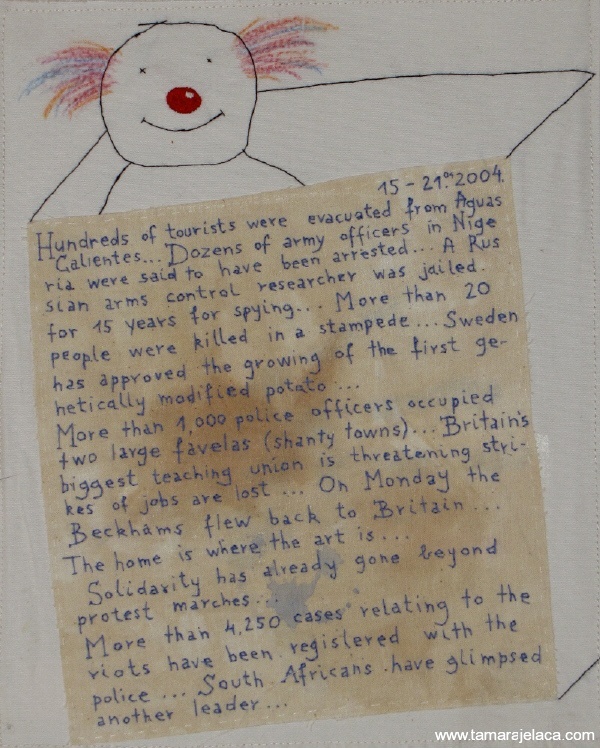 15 - 21. 04 2004.
Hundreds of tourists were evacuated from Aguas
Calientes... Dozens of army officers in Nige
ria were said to have been arrested... A Rus
sian arms control researcher was jailed.
for 15 years for spying... More than 20
people were killed in a stampede... Sweden
has approved the growing of the first ge-
netically modified potato...
More than 1,000 police officers occupied
two large favelas (shanty towns)... Britain's
biggest teaching union is threatening stri-
kes of jobs are lost... On Monday the
Beckhams flew back to Britain...
The home is where the art is...
Solidarity has already gone beyond
protest marches...
More than 4,250 cases relating to the
riots have been registered with the
police... South Africans have glimpsed
another leader...
www.tamarajelaca.com